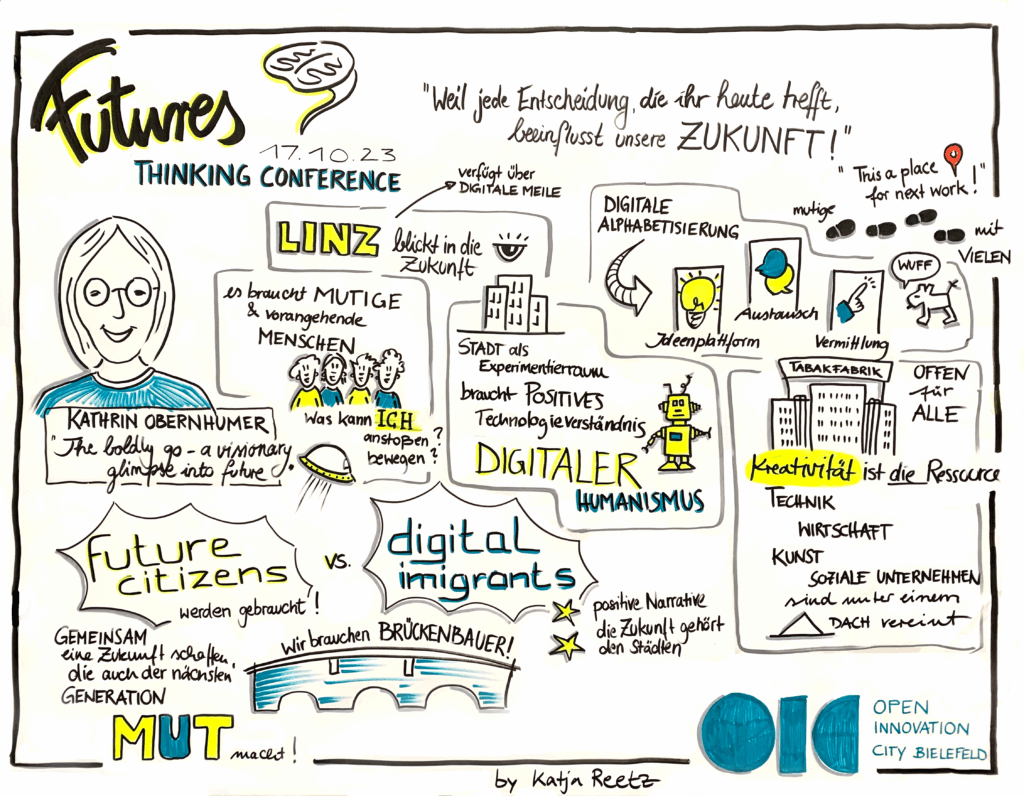 Futures
17.10.23
THINKING CONFERENCE
"Weil jede Entscheidung, die ihr heute trefft,
beeinflusst unsere ZUKUNFT!"
"This a place
for next work!"
mutige
mit
VIELEN
verfügt über
DIGITALE MEILE
LINZ blickt in die
Zukunft
DIGITALE
ALPHABETISIERUNG
Ideenplattform
Austausch
Vermittlung
WUFF
es braucht MUTIGE
& vorangehende
MENSCHEN
Was kann ICH
anstoßen?
bewegen?
KATHRIN OBERNHUMER
"The boldly go - a visionary
glimpse into future".
STADT als
Experimentierraum
braucht POSITIVES
Technologieverständnis
DIGITALER
HUMANISMUS
TABAKFABRIK
OFFEN
für
ALLE
Kreativität ist die Ressource
TECHNIK
WIRTSCHAFT
KUNST
SOZIALE UNTERNEHMEN
sind unter einem
DACH vereint
future
citizens
vs.
digital
imigrants
werden gebraucht!
GEMEINSAM
eine Zukunft schaffen,
die auch der nächsten
GENERATION
MUT macht!
Wir brauchen BRÜCKENBAUER!
positive Narrative
die Zukunft gehört
den Städten
OIC
OPEN
INNOVATION
CITY BIELEFELD
by Katja Reetz